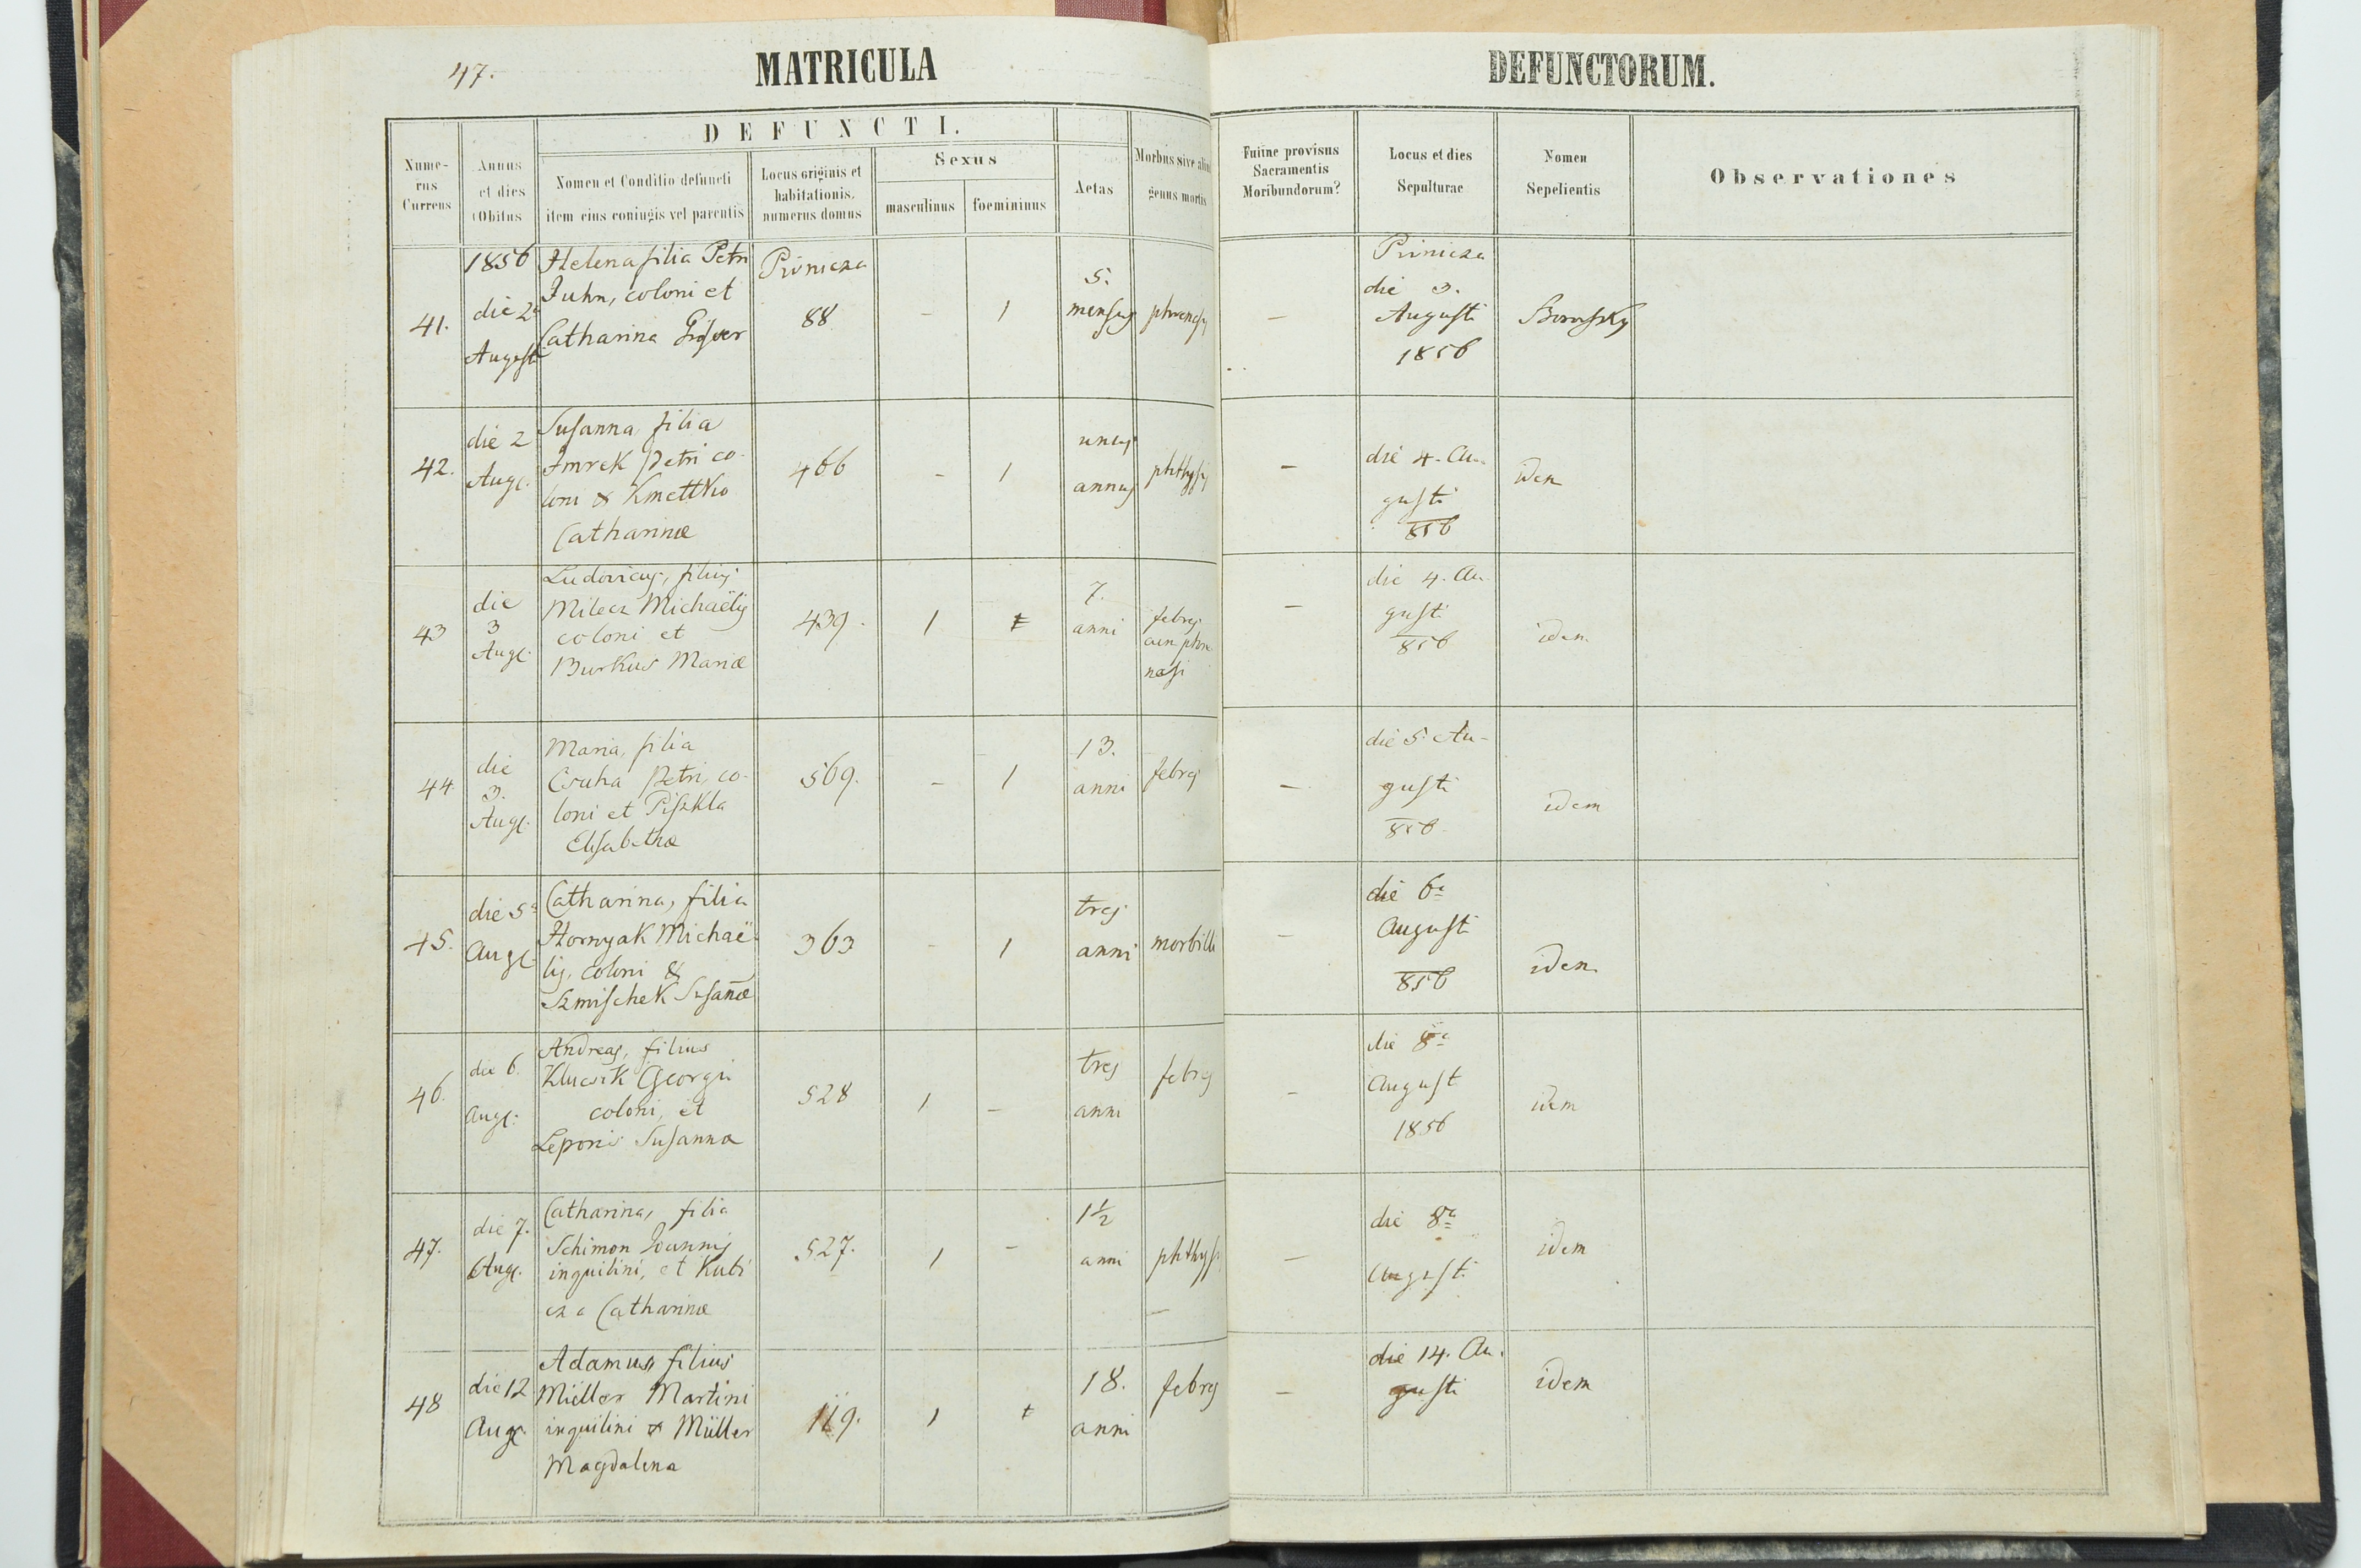 47.
MATRICULA
DEFUNCTORUM.
DEFUNCTI.
Nume-
rus
Currens
Annus
et dies
Obitus
Nomen et Conditio defuncti
item eius coniugis vel parentis
Locus originis et
habitationis,
numerus domus
Sexus
masculinus
foemininus
Aetas
Morbus sive aliud
genus mortis
Fuitne provisus
Sacramentis
Moribundorum?
Locus et dies
Sepulturae
Nomen
Sepelientis
Observationes
41.
1856
die 2a
Augusti
Helena filia Petri
Juhn, coloni et
Catharina
88
-
1
5.
menses
-
die 3.
Augusti
1856
42.
die 2
Aug.
Susanna filia
Imrek Petri co-
loni & Kmettko
Catharinæ
466
-
1
unus
annus
phthysis
-
die 4. Au-
gusti
856
idem
43
die
3
Aug.
Ludovicus, filius
Milecz Michaëlis
coloni et
Burkus Mariæ
439.
1
7.
anni
febris
cum phre
nesi
-
die 4. Au-
gusti
856
idem
44
die
3.
Aug.
Maria, filia
Csuha Petri, co-
loni et Piszkla
Elisabethæ
569.
-
1
13.
anni
febris
-
die 5. Au-
gusti
856
idem
45.
die 5a
Aug.
Catharina, filia
Hornyak Michaë-
lis, coloni &
Szmischek Susanæ
363
-
1
tres
anni
morbilli
-
die 6a
Augusti
856
idem
46.
die 6.
Aug.
Andreas, filius
Klucsik Georgii
coloni, et
Leporis Susanna
528
1
-
tres
anni
febris
-
die 8a
August
1856
idem
47.
die 7.
Aug.
Catharina, filia
Schimon Joannis
inquilini, et Kubi
cza Catharinæ
527.
1
-
1½
anni
phthysis
-
die 8a
Augusti
idem
48
die 12
Aug.
Adamus, filius
Müller Martini
inquilini & Müller
Magdalena
119.
1
18.
anni
febris
-
die 14. Au-
gusti
idem